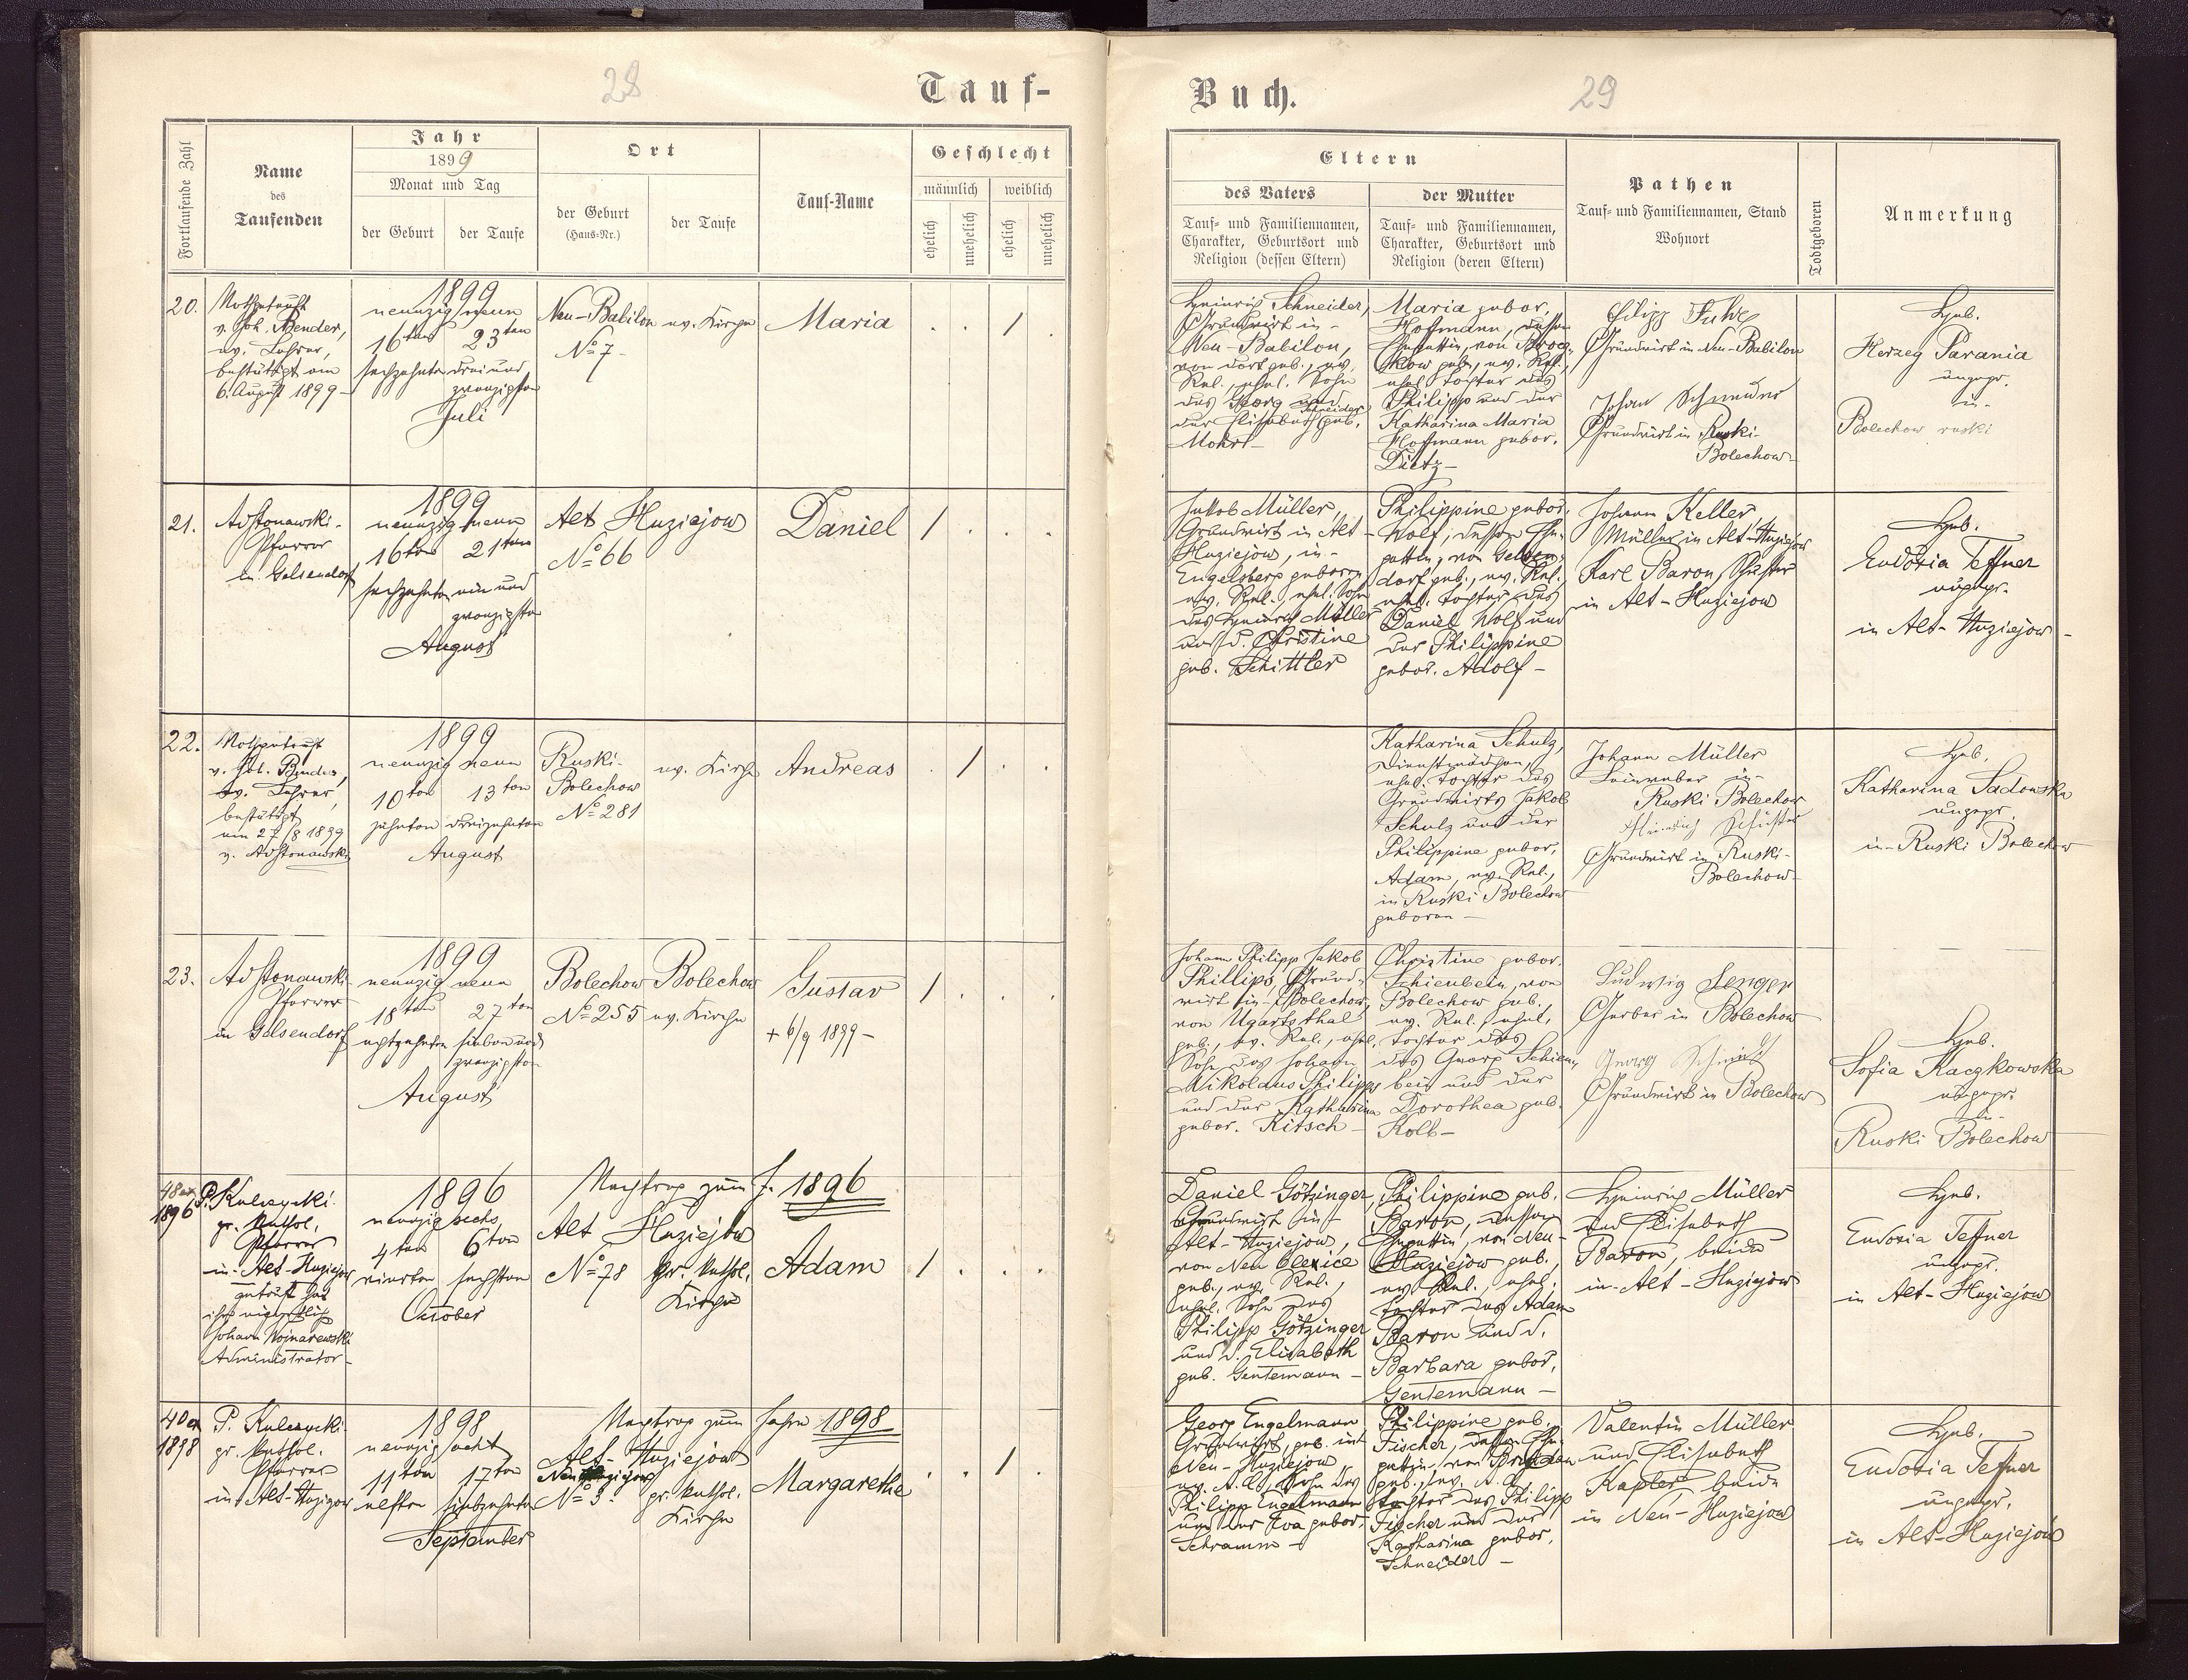 28
Tauf-
Buch.
29
Fortlaufende Zahl
Name
des
Taufenden
Jahr
1899
Monat und Tag
der Geburt
der Taufe
Ort
der Geburt
(Haus-Nr.)
der Taufe
Tauf-Name
Geschlecht
männlich
weiblich
ehelich
unehelich
ehelich
unehelich
Eltern
des Vaters
Tauf- und Familiennamen,
Charakter, Geburtsort und
Religion (dessen Eltern)
der Mutter
Tauf- und Familiennamen,
Charakter, Geburtsort und
Religion (deren Eltern)
Pathen
Tauf- und Familiennamen, Stand
Wohnort
Todtgeboren
Anmerkung
20.
Nothgetauft
v. Joh. Bender,
ev. Lehrer,
bestättigt am
6. August 1899 -
1899
neunzig neun
16ten 23ten
sechzehnten drei und
zwanzigsten
Juli
Neu-Babilon
No 7 -
ev. Kirche
Maria
. . / .
Heinrich Schneider,
Grundwirt in -
Neu-Babilon,
von dort geb., ev.
Rel., ehel. Sohn
des Georg Schneider und
der Elisabeth geb.
Mohr -
Maria gebor.
Hoffmann, dessen
Ehegattin, von Broc-
kow geb., ev. Rel.,
ehel. Tochter des
Philipp und der
Katharina Maria
Hoffmann gebor.
Dietz -
Filipp
Grundwirt in Neu-Babilon
Johan Schneider
Grundwirt in Ruski-
Bolechow -
Heb.
Herzeg Parania
ungepr.
in -
Bolechow ruski
21.
Adstonawski -
Pfarrer
in Gelsendorf
1899
neunzig neun
16ten 21ten
sechzehnten ein und
zwanzigsten
August
Alt Huziejow
No 66
Daniel
/ . . .
Jakob Müller,
Grundwirt in Alt -
Huziejow, in -
Engelsberg geboren
ev. Rel., ehel. Sohn
des Heinrich Müller
und d. Christine
geb. Schittler
Philippine gebor.
Wolf, dessen Ehe-
gattin, von Gelsen-
dorf geb., ev. Rel.
ehel. Tochter des
Daniel Wolf und
der Philippine
gebor. Adolf -
Johann Keller
Müller in Alt-Huziejow
Karl Baron, Schuster
in Alt-Huziejow
Heb.
Eudoxia Teffner
ungepr.
in Alt-Huziejow -
22.
Nothgetauft
v. Joh. Bender,
ev. Lehrer,
bestättigt
am 27/8 1899
v. Adstonawski
1899
neunzig neun
10ten 13ten
zehnten dreizehnten
August
Ruski-
Bolechow
No 281
ev. Kirche
Andreas
. / . .
Katharina Schulz,
Dienstmädchen,
ehel. Tochter des
Grundwirts Jakob
Schulz und der
Philippine gebor.
Adam, ev. Rel.,
in Ruski Bolechow
geboren -
Johann Müller
Leinweber in -
Ruski Bolechow
Heinrich
Grundwirt in Ruski-
Bolechow -
Heb.
Katharina Sadowska
ungepr.
in - Ruski Bolechow
23.
Adstonawski
Pfarrer
in Gelsendorf
1899
neunzig neun
18ten 27ten
achtzehnten sieben und
zwanzigsten
August
Bolechow
No 255
Bolechow
ev. Kirche
Gustav
+ 6/9 1899 -
/ . . .
Johann Philipp Jakob
Phillips, Grund-
wirt in - Bolechow,
von Ugartsthal
geb., ev. Rel., ehel.
Sohn des Johann
Nikolaus Philipps
und der Katharina
gebor. Kitsch -
Christine gebor.
Schienbein, von
Bolechow geb.,
ev. Rel., ehel.
Tochter des
des Georg Schien-
bein und der
Dorothea geb.
Kolb -
Ludwig Senger
Gerber in Bolechow
Georg Schmidt
Grundwirt in Bolechow
Heb.
Sofia Kaczkowska
ungepr.
in -
Ruski Bolechow
Nachtrag zum J. 1896
48 ex
1896
P. Kulczycki
gr. kathol.
Pfarrer
in - Alt-Huziejow
getauft hat
ihn eigentlich
Johann Wojnarowski
Administrator -
1896
neunzig sechs
4ten 6ten
vierten sechsten
October
Alt Huziejow
No 78
gr. kathol.
Kirche
Adam
/ . . .
Daniel Götzinger,
Grundwirt in -
Alt-Huziejow,
von Neu Olexice
geb., ev. Rel.,
ehel. Sohn des
Philipp Götzinger
und d. Elisabeth
geb. Gentemann -
Philippine geb.
Baron, dessen
Ehegattin, von Neu-
Huziejow geb.,
ev. Rel., ehel.
Tochter des Adam
Baron und d.
Barbara gebor.
Gentemann -
Heinrich Müller
und Elisabeth
Baron, beide
in - Alt-Huziejow
Heb.
Eudoxia Teffner
ungepr.
in Alt-Huziejow
Nachtrag zum Jahre 1898
40 ex
1898
P. Kulczycki
gr. kathol.
Pfarrer
in Alt-Huziejow
1898
neunzig acht
11ten 17ten
elften siebzehnten
September
Alt-Huziejow
No 3.
gr. kathol.
Kirche
Margarethe
. . / .
Georg Engelmann
Grundwirt, geb. in
Neu-Huziejow
ev. A. C., Sohn des
Philipp Engelmann
und der Eva gebor.
Schramm -
Philippine geb.
Fischer, dessen Ehe-
gattin, von
geb., ev. A. C.
Tochter des Philipp
Fischer und der
Katharina gebor.
Schneider -
Valentin Müller
und Elisabeth
Kapler, beide
in Neu-Huziejow
Heb.
Eudoxia Teffner
ungepr.
in Alt-Huziejow